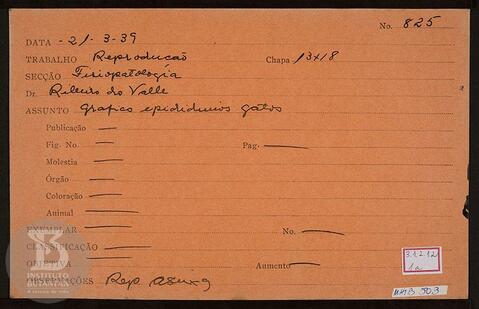 No. 825
DATA - 21-3-39
TRABALHO Reproducão Chapa 13x18
SECÇÃO Fisiopatologia
Dr. Ribeiro do Valle
ASSUNTO grafico epididimios gatos
Publicação —
Fig. No — Pag. —
Molestia —
Órgão —
Coloração —
Animal —
EXEMPLAR — No. —
CLASSIFICAÇÃO —
OBJETIVA — Aumento —
OBSERVAÇÕES Rep
3.1.2.12
1a
INSTITUTO
BUTANTAN